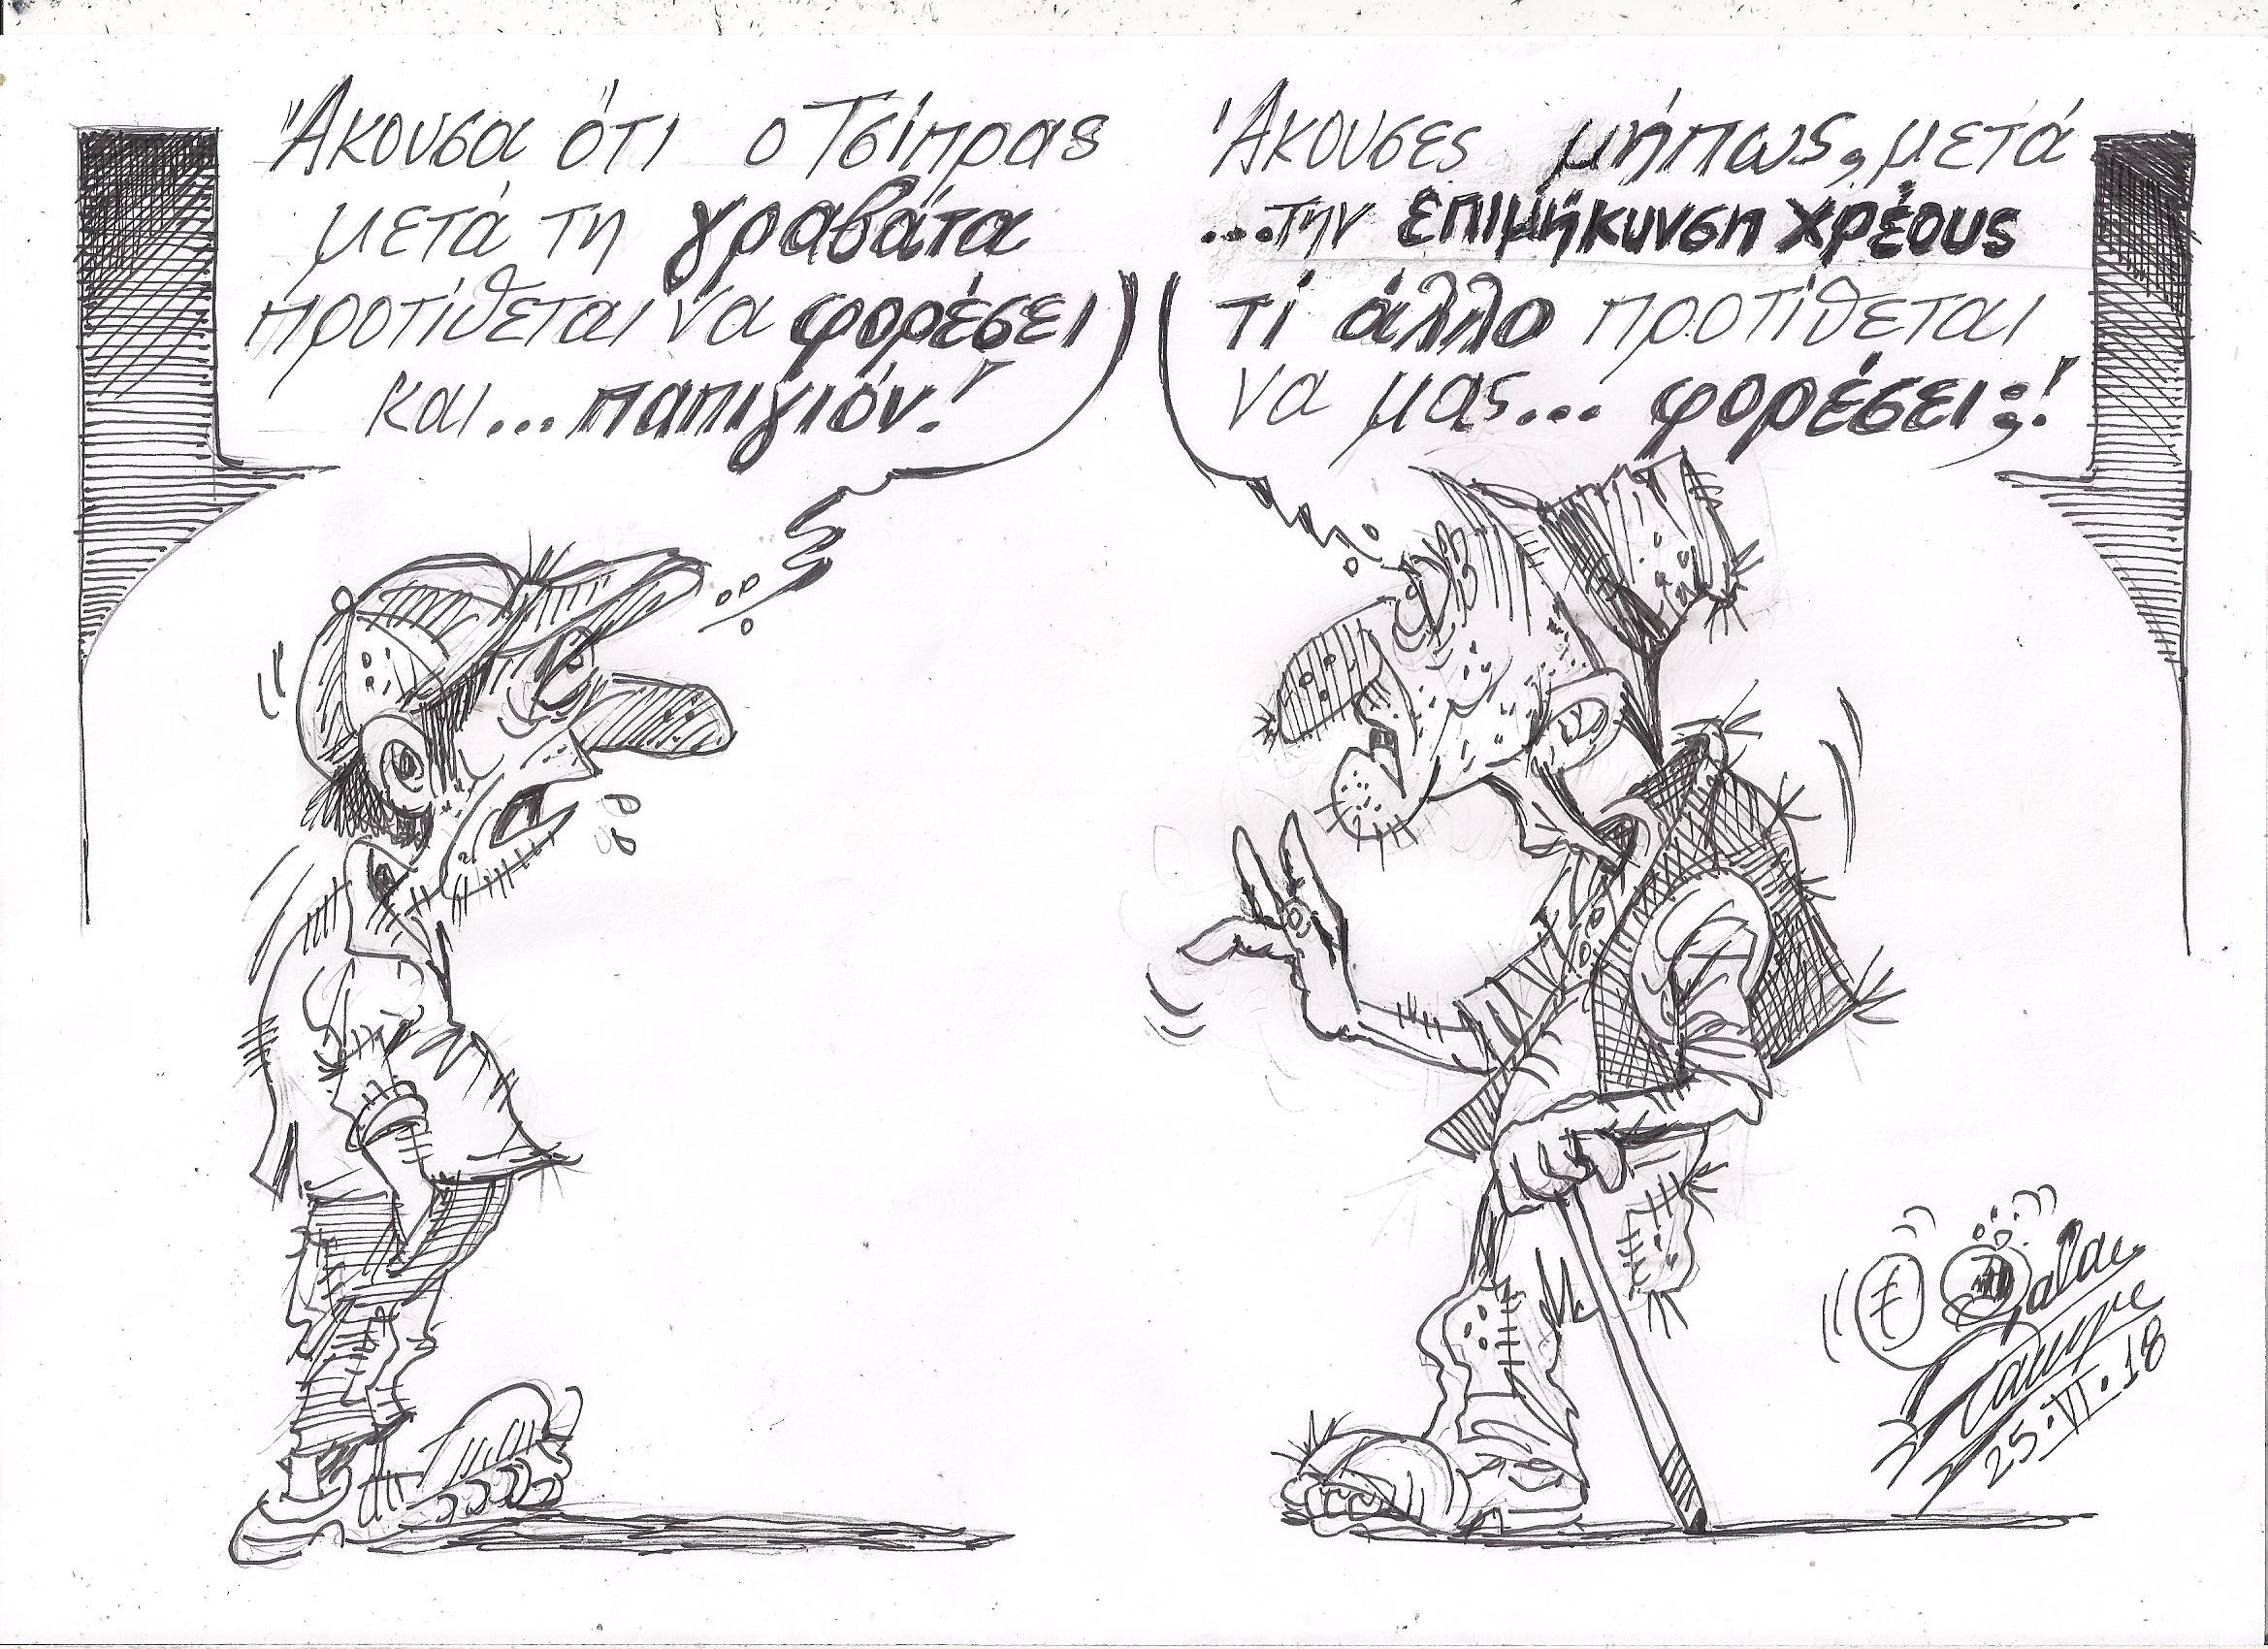 Άκουσα ότι ο Τσίπρας
μετά τη γραβάτα
προτίθεται να φορέσει
και... παπιγιόν!
Άκουσες μήπως, μετά
...την επιμήκυνση χρέους
τί άλλο προτίθεται
να μας... φορέσει;!
25.VI.18